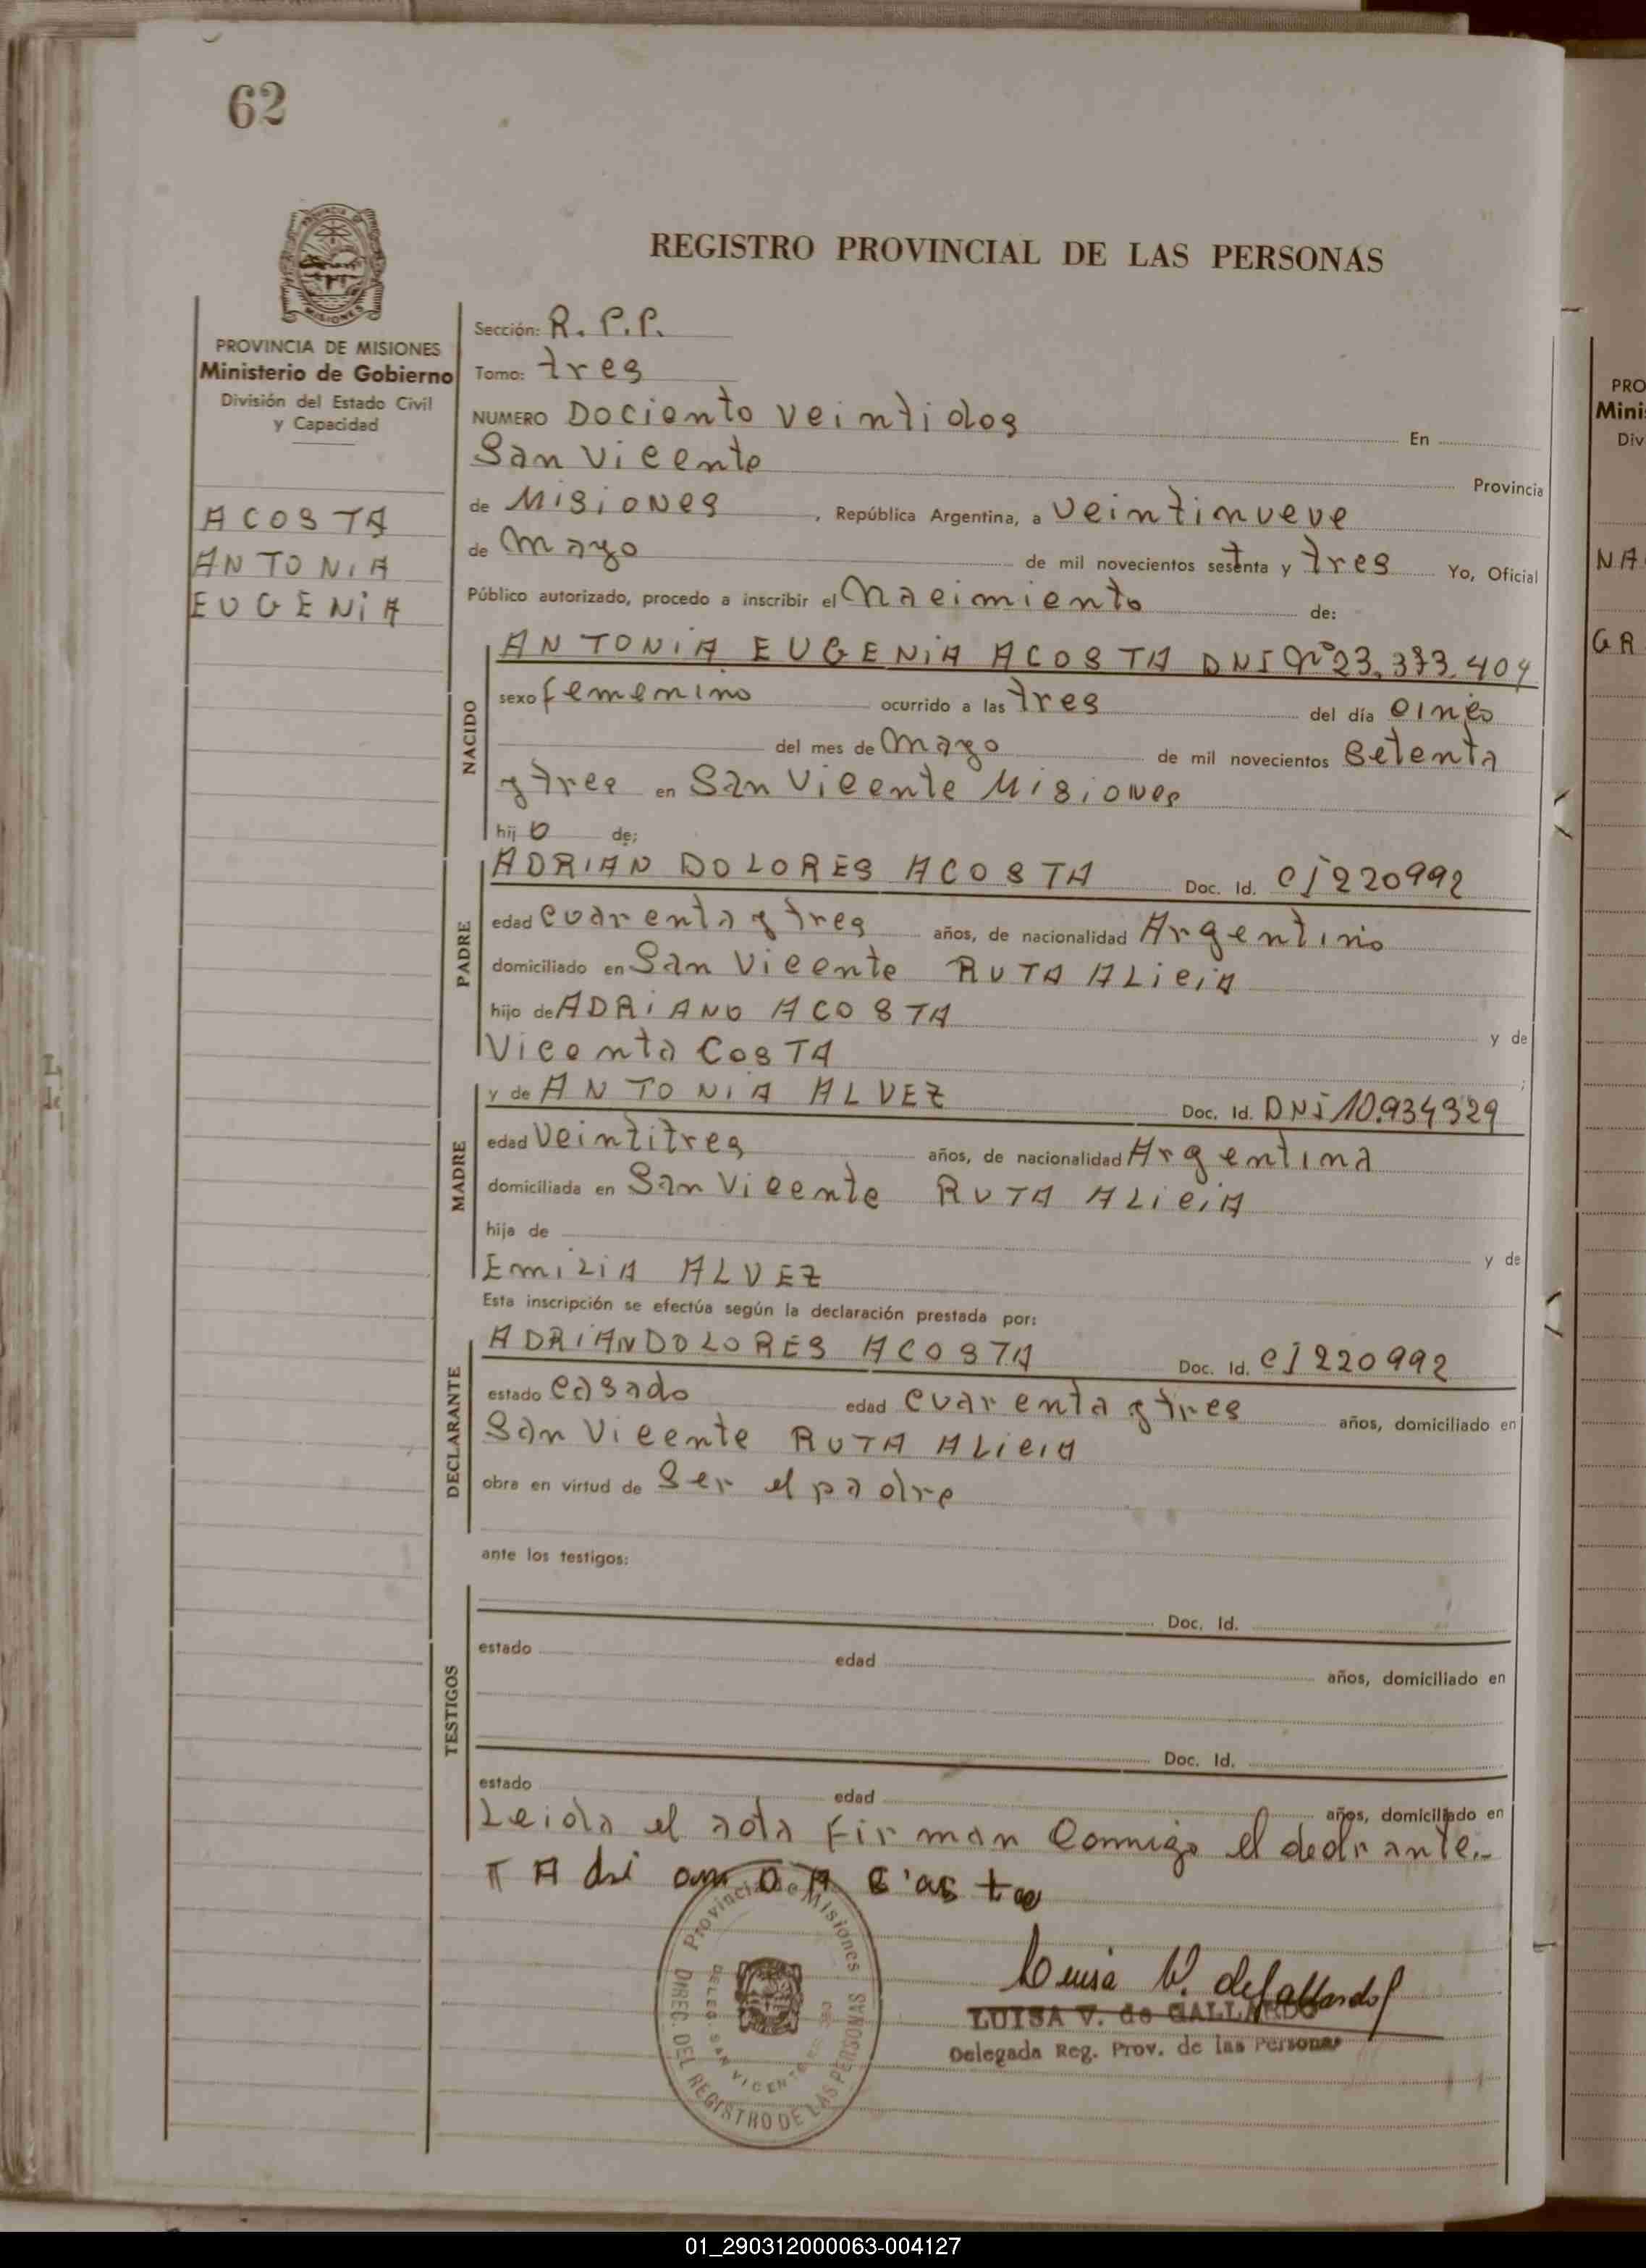 62
REGISTRO PROVINCIAL DE LAS PERSONAS
PROVINCIA DE MISIONES
Ministerio de Gobierno
División del Estado Civil
y Capacidad
ACOSTA
ANTONIA
EUGENIA
Sección: R. P.P.
Tomo: tres
NUMERO Dociento veintidos En
San Vicente Provincia
de Misiones, República Argentina, a veintinueve
de mayo de mil novecientos setenta y tres Yo, Oficial
Público autorizado, procedo a inscribir el nacimiento de:
NACIDO
ANTONIA EUGENIA ACOSTA DNI Nº 23.373.404
sexo femenino ocurrido a las tres del día cinco
del mes de mayo de mil novecientos setenta
y tres en San Vicente Misiones
hij o de;
PADRE
ADRIAN DOLORES ACOSTA Doc. Id. CI 220992
edad cuarenta y tres años, de nacionalidad Argentino
domiciliado en San Vicente RUTA ALICIA
hijo de ADRIANO ACOSTA y de
Vicenta COSTA
MADRE
y de ANTONIA ALVEZ Doc. Id. DNI 10.934329
edad veintitres años, de nacionalidad Argentina
domiciliada en San Vicente RUTA ALICIA
hija de y de
EmiliA ALVEZ
Esta inscripción se efectúa según la declaración prestada por:
DECLARANTE
ADRIAN DOLORES ACOSTA Doc. Id. CI 220992
estado casado edad cuarenta y tres años, domiciliado en
San Vicente RUTA ALICIA
obra en virtud de ser el padre
ante los testigos:
TESTIGOS
Doc. Id.
estado edad años, domiciliado en
Doc. Id.
estado edad años, domiciliado en
Leida el acta firman conmigo el declarante.-
Provincia de Misiones
DIREC. DEL REGISTRO DE LAS PERSONAS
DELEG. SAN VICENTE
Luisa V. de Gallardo
LUISA V. de GALLARDO
Delegada Reg. Prov. de las Personas
PRO
Mini
Div
NA
GR
01_290312000063-004127